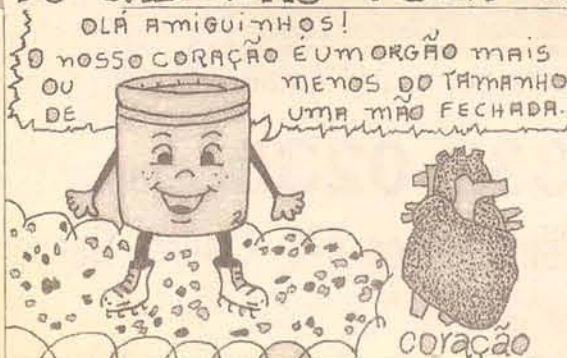 OLÁ AMIGUINHOS!
O NOSSO CORAÇÃO É UM ORGÃO MAIS
OU MENOS DO TAMANHO
DE UMA MÃO FECHADA.
coração